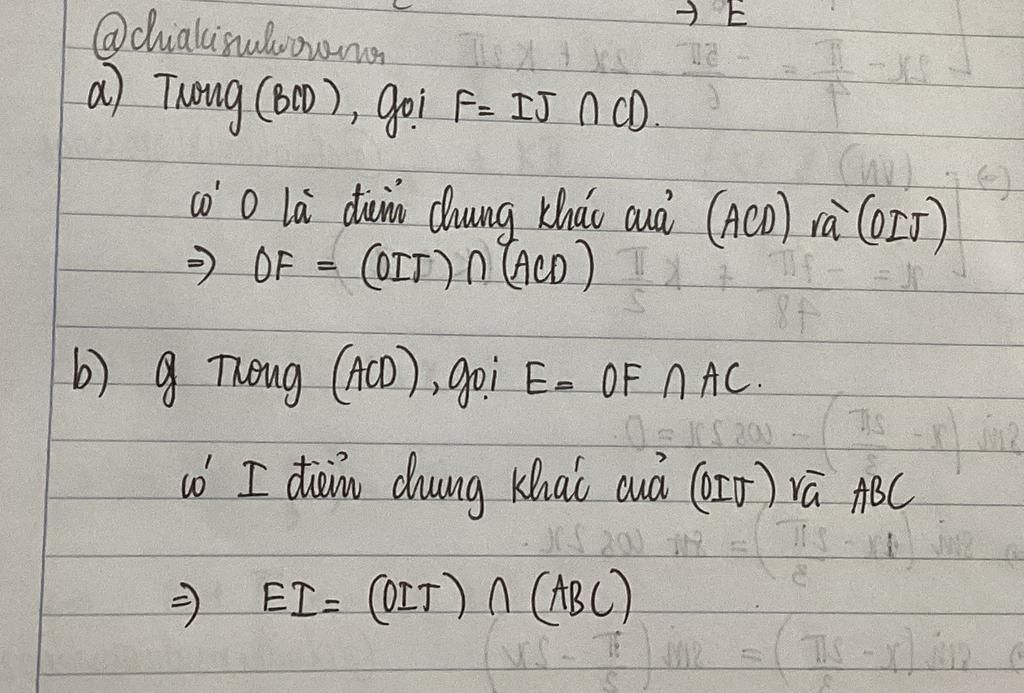 → E
@chiakisuwowono
a) Trong (BCD), gọi F = IJ ∩ CD.
có O là điểm chung khác của (ACD) và (OIJ)
⇒ OF = (OIJ) ∩ (ACD)
b) g Trong (ACD), gọi E = OF ∩ AC.
có I điểm chung khác của (OIJ) và ABC
⇒ EI = (OIJ) ∩ (ABC)